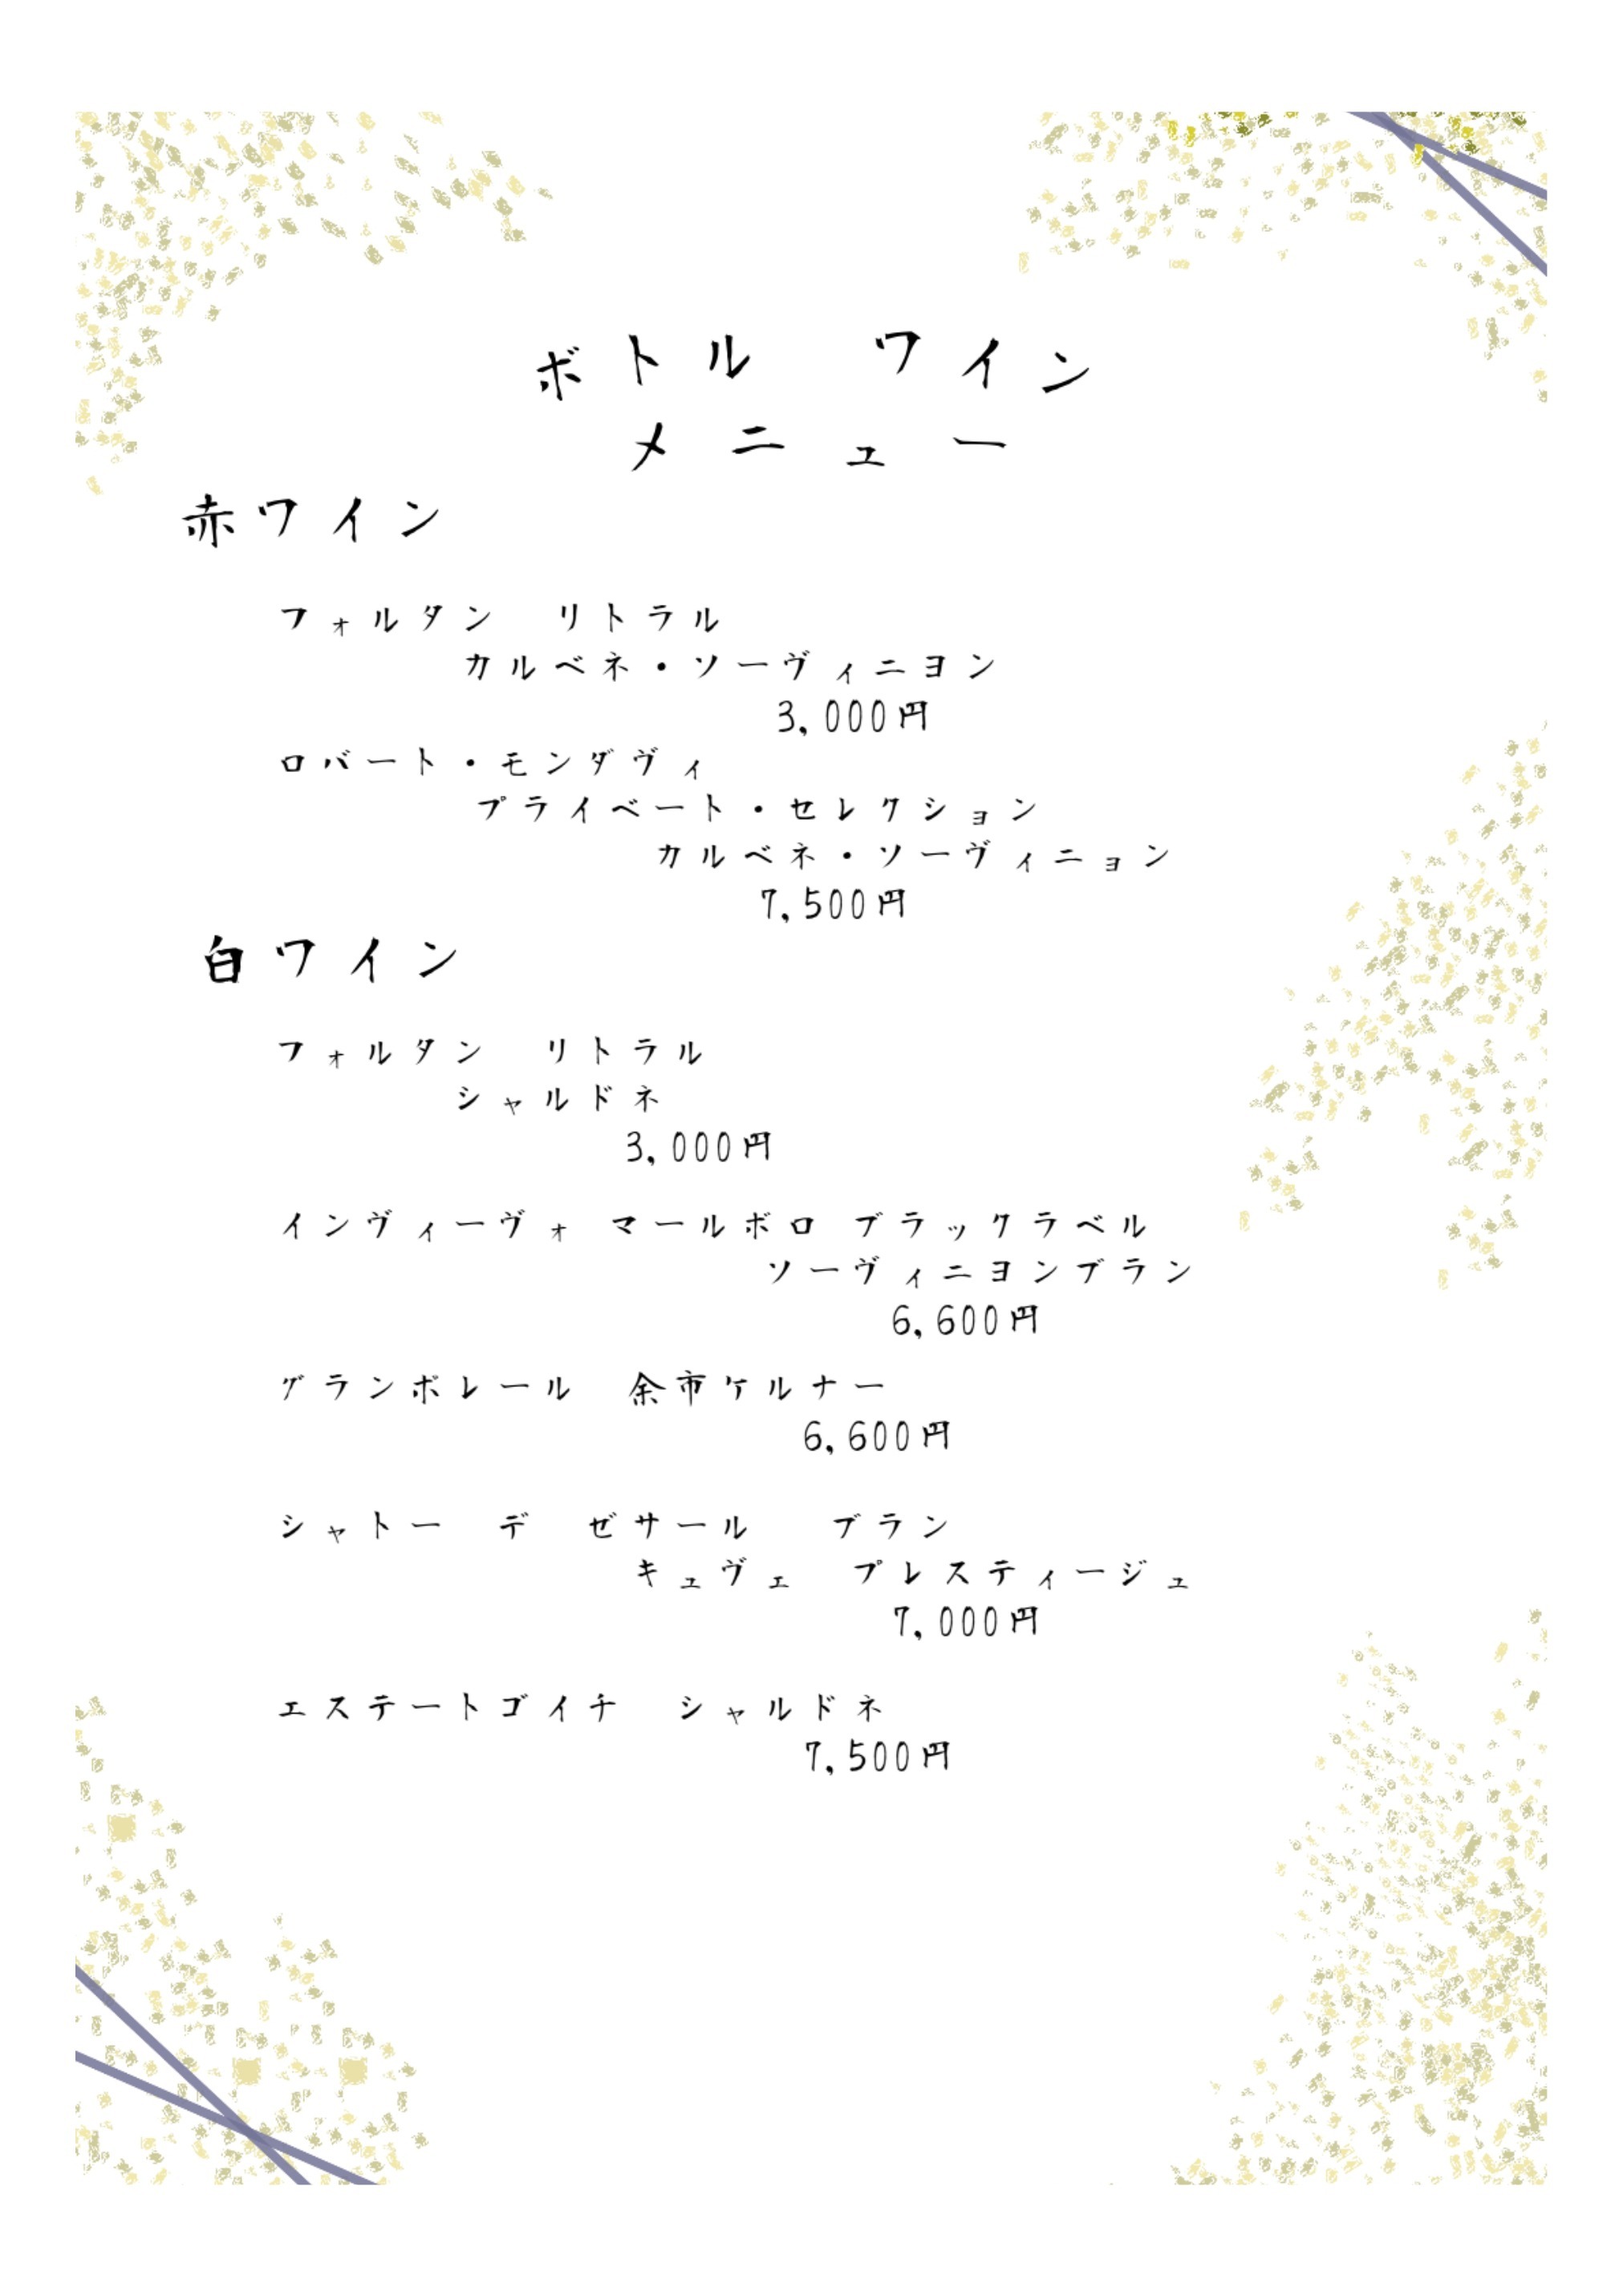 ボトル　ワイン
メニュー
赤ワイン
フォルタン　リトラル
カルベネ・ソーヴィニヨン
3,000円
ロバート・モンダヴィ
プライベート・セレクション
カルベネ・ソーヴィニョン
7,500円
白ワイン
フォルタン　リトラル
シャルドネ
3,000円
インヴィーヴォ マールボロ ブラックラベル
ソーヴィニヨンブラン
6,600円
グランポレール　余市ケルナー
6,600円
シャトー　デ　ゼサール　　ブラン
キュヴェ　プレスティージュ
7,000円
エステートゴイチ　シャルドネ
7,500円